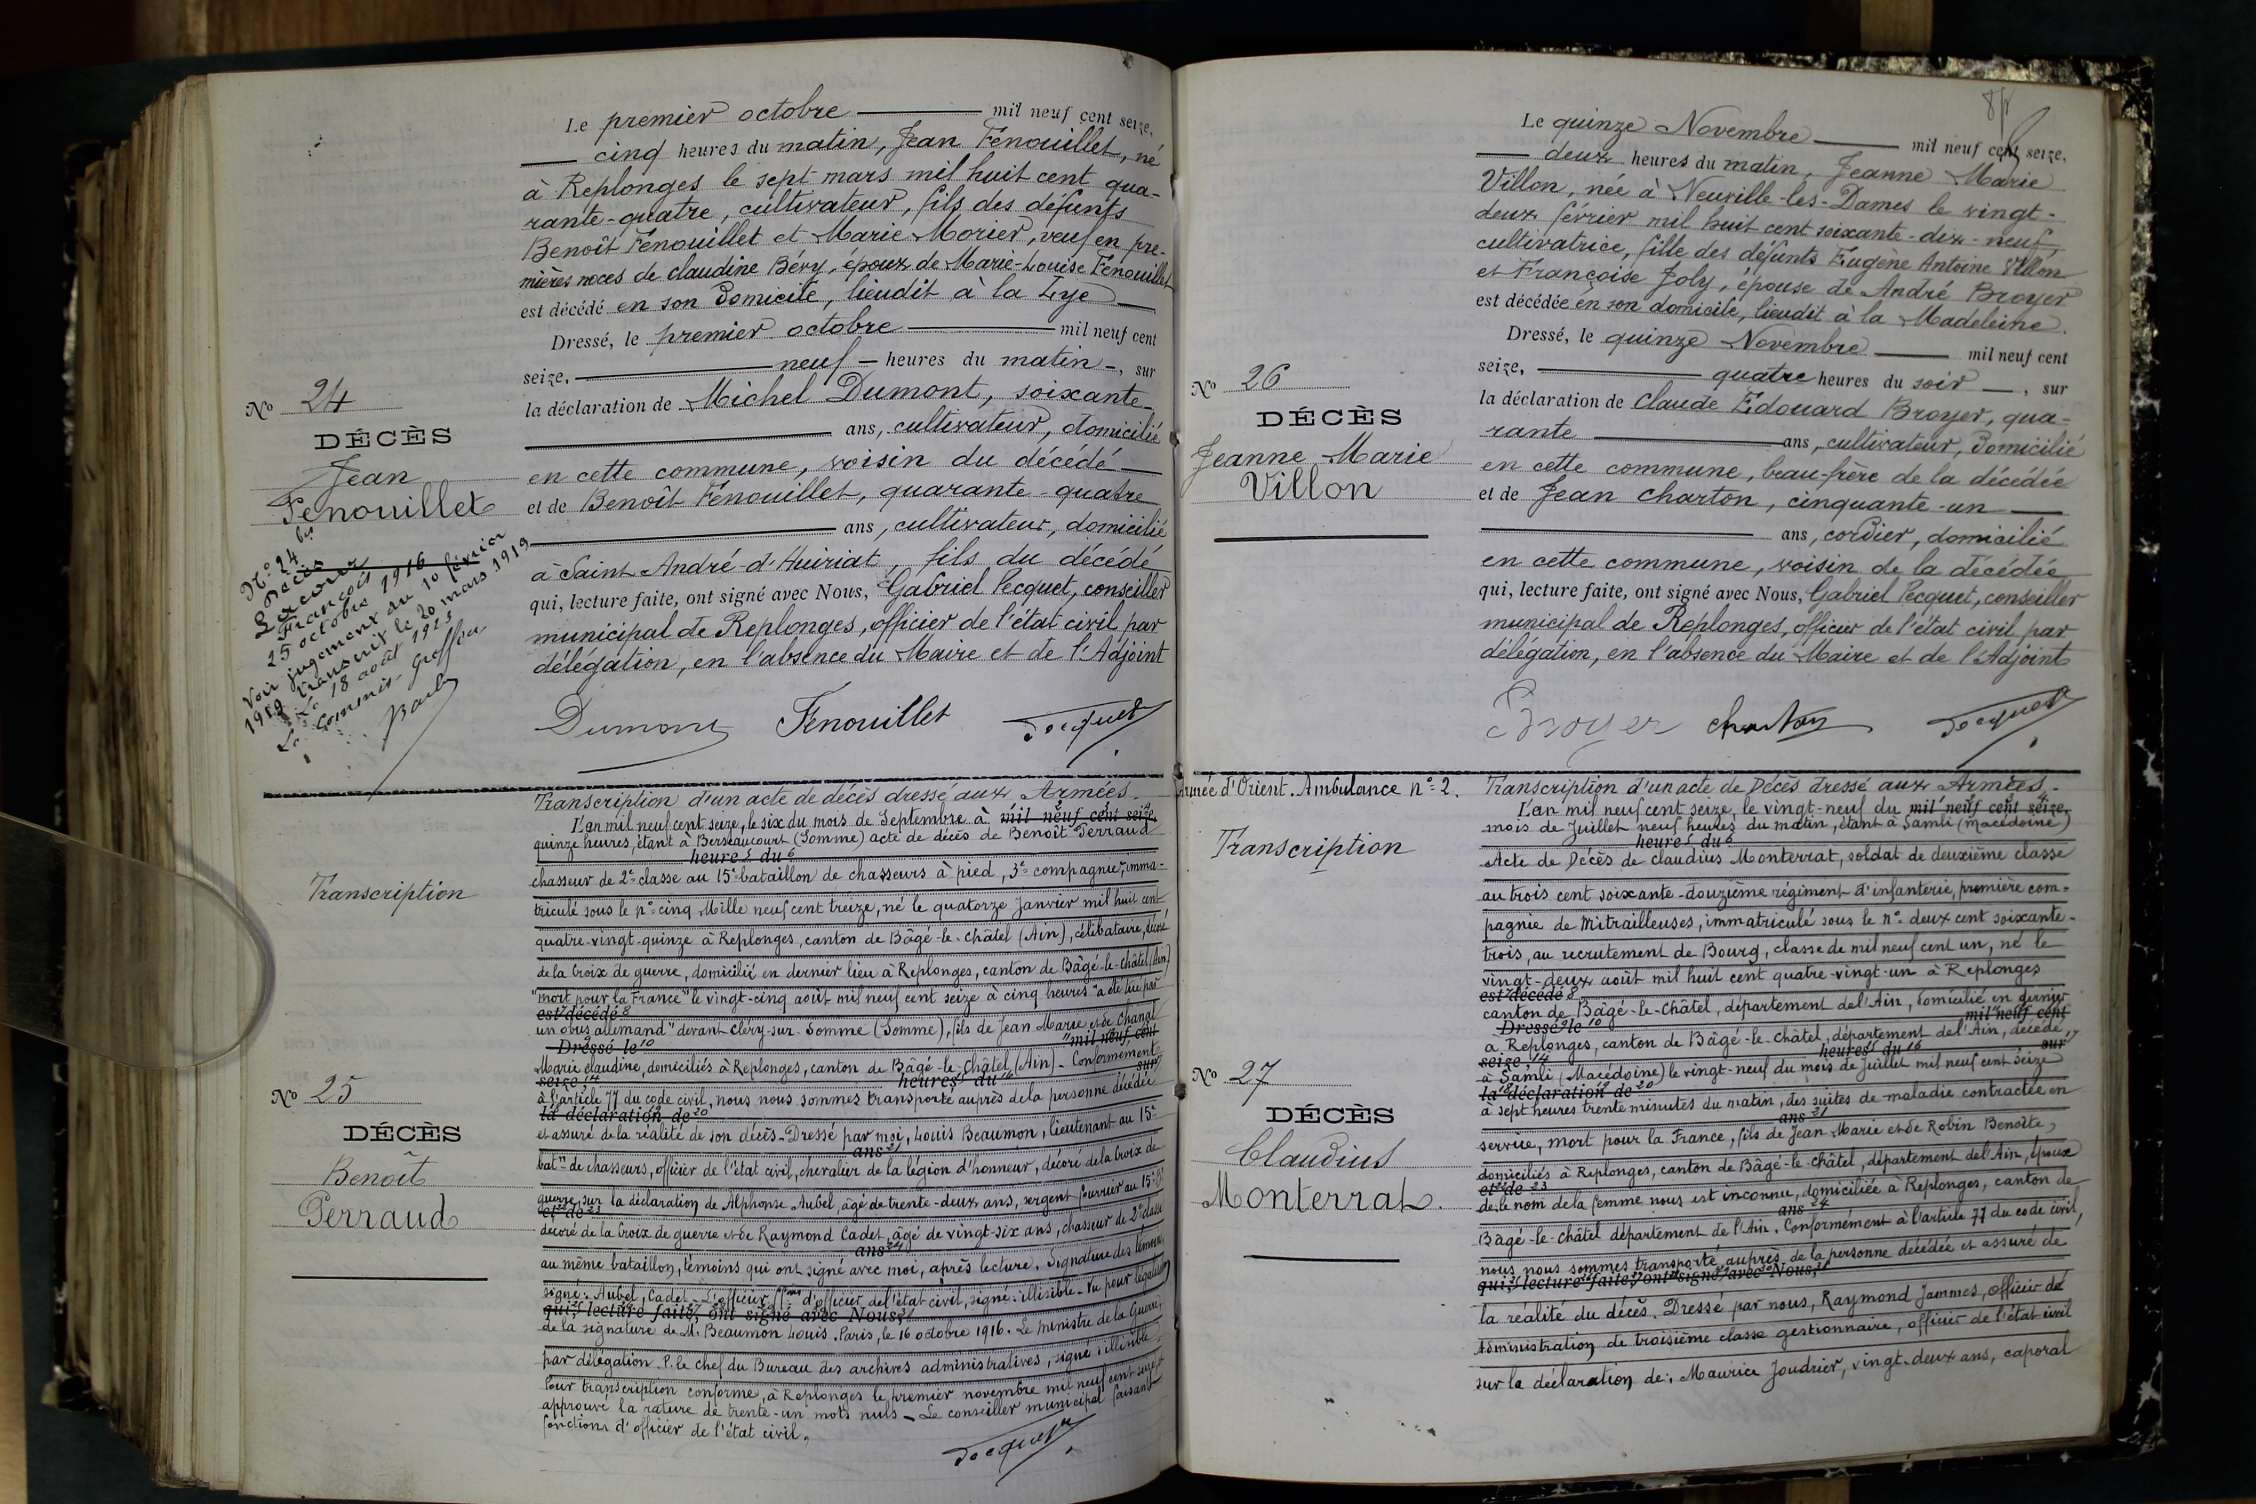 Le premier octobre mil neuf cent seize,
cinq heures du matin, Jean Fenouillet, né
à Replonges le sept mars mil huit cent qua-
rante-quatre, cultivateur, fils des défunts
Benoît Fenouillet et Marie Morier, veuf en pre-
mières noces de Claudine Béry, époux de Marie-Louise Fenouillet
est décédé en son domicile, lieudit à la Lye
Dressé, le premier octobre mil neuf cent
seize, neuf heures du matin, sur
la déclaration de Michel Dumont, soixante
ans, cultivateur, domicilié
en cette commune, voisin du décédé
et de Benoît Fenouillet, quarante-quatre
ans, cultivateur, domicilié
à Saint André-d'Huiriat, fils du décédé
qui, lecture faite, ont signé avec Nous, Gabriel Pecquet, conseiller
municipal de Replonges, officier de l'état civil par
délégation, en l'absence du Maire et de l'Adjoint
Dumont Fenouillet Pecquet
No 24
DÉCÈS
Jean
Fenouillet
No 24 bis
Décès
François
25 octobre 1916
Voir jugement du 10 février
1919 transcrit le 20 mars 1919
Le 18 août 1923
Le Commis-Greffier
Transcription d'un acte de décès dressé aux Armées.
L'an mil neuf cent seize, le six du mois de Septembre à mil neuf cent seize,
quinze heures, étant à Berseaucourt (Somme) acte de décès de Benoît Perraud
heures du
chasseur de 2e classe au 15e bataillon de chasseurs à pied, 3e compagnie, imma-
triculé sous le no cinq Mille neuf cent treize, né le quatorze Janvier mil huit cent
quatre-vingt-quinze à Replonges, canton de Bâgé-le-Châtel (Ain), célibataire, décoré
de la Croix de guerre, domicilié en dernier lieu à Replonges, canton de Bâgé-le-Châtel (Ain)
"mort pour la France" le vingt-cinq août mil neuf cent seize à cinq heures "a été tué par
est décédé
un obus allemand" devant Cléry-sur-Somme (Somme), fils de Jean Marie et de Chanal
Dressé le mil neuf cent
Marie Claudine, domiciliés à Replonges, canton de Bâgé-le-Châtel (Ain). Conformément
seize, heures du sur
à l'article 77 du code civil, nous nous sommes transporté auprès de la personne décédée
la déclaration de
et assuré de la réalité de son décès. Dressé par moi, Louis Beaumon, lieutenant au 15e
ans
batn de chasseurs, officier de l'état civil, chevalier de la légion d'honneur, décoré de la Croix de
guerre, sur la déclaration de Alphonse Aubel, âgé de trente-deux ans, sergent fourrier au 15e
et de
décoré de la Croix de guerre et de Raymond Cadet, âgé de vingt-six ans, chasseur de 2e classe
ans
au même bataillon, témoins qui ont signé avec moi, après lecture. Signature des témoins,
signé: Aubel, Cadet. L'officier d'officier de l'état civil, signé: illisible. Vu pour légalisation
qui, lecture faite, ont signé avec Nous,
de la signature de M. Beaumon Louis. Paris, le 16 octobre 1916. Le Ministre de la Guerre,
par délégation. P. le Chef du Bureau des archives administratives, signé: illisible.
Pour transcription conforme, à Replonges le premier novembre mil neuf cent seize
approuvé la rature de trente-un mots nuls. Le conseiller municipal faisant
fonctions d'officier de l'état civil,
Pecquet
Transcription
No 25
DÉCÈS
Benoît
Perraud
Le quinze Novembre mil neuf cent seize,
deux heures du matin, Jeanne Marie
Villon, née à Neuville-les-Dames le vingt-
deux février mil huit cent soixante-dix-neuf,
cultivatrice, fille des défunts Eugène Antoine Villon
et Françoise Joly, épouse de André Broyer
est décédée en son domicile, lieudit à la Madeleine.
Dressé, le quinze Novembre mil neuf cent
seize, quatre heures du soir, sur
la déclaration de Claude Édouard Broyer, qua-
rante ans, cultivateur, domicilié
en cette commune, beau-frère de la décédée
et de Jean Charton, cinquante-un
ans, cordier, domicilié
en cette commune, voisin de la décédée
qui, lecture faite, ont signé avec Nous, Gabriel Pecquet, conseiller
municipal de Replonges, officier de l'état civil par
délégation, en l'absence du Maire et de l'Adjoint
Broyer Charton Pecquet
No 26
DÉCÈS
Jeanne Marie
Villon
Armée d'Orient. Ambulance no 2.
Transcription d'un acte de Décès dressé aux Armées.
L'an mil neuf cent seize, le vingt-neuf du mil neuf cent seize,
mois de Juillet neuf heures du matin, étant à Samli (Macédoine)
heures du
Acte de Décès de Claudius Monterrat, soldat de deuxième classe
au trois cent soixante-douzième régiment d'infanterie, première com-
pagnie de Mitrailleuses, immatriculé sous le no deux cent soixante-
trois, au recrutement de Bourg, classe de mil neuf cent un, né le
vingt-deux août mil huit cent quatre-vingt-un à Replonges
est décédé
canton de Bâgé-le-Châtel, département de l'Ain, domicilié en dernier
Dressé le mil neuf cent
à Replonges, canton de Bâgé-le-Châtel, département de l'Ain, décédé,
seize, heures du sur
à Samli (Macédoine) le vingt-neuf du mois de Juillet mil neuf cent seize
la déclaration de
à sept heures trente minutes du matin, des suites de maladie contractée en
ans
service, mort pour la France, fils de Jean Marie et de Robin Benoîte,
domiciliés à Replonges, canton de Bâgé-le-Châtel, département de l'Ain, époux
et de
de: le nom de la femme nous est inconnu, domiciliée à Replonges, canton de
ans
Bâgé-le-Châtel département de l'Ain. Conformément à l'article 77 du code civil,
nous nous sommes transporté auprès de la personne décédée et assuré de
qui, lecture faite, ont signé avec Nous,
la réalité du décès. Dressé par nous, Raymond Jammes, officier de
Administration de troisième classe gestionnaire, officier de l'état civil
sur la déclaration de: Maurice Joudrier, vingt-deux ans, caporal
Transcription
No 27
DÉCÈS
Claudius
Monterrat.